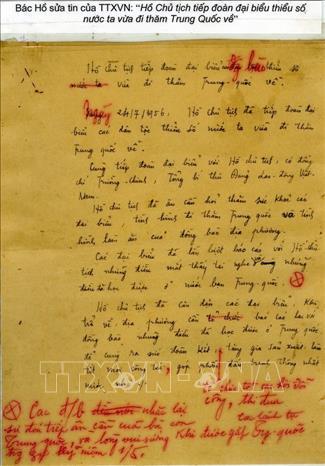 Bác Hồ sửa tin của TTXVN: “Hồ Chủ tịch tiếp đoàn đại biểu thiểu số
nước ta vừa đi thăm Trung Quốc về”
Hồ chủ tịch tiếp đoàn đại biểu đồng bào thiểu số
nước ta đi thăm Trung-quốc về.
Ngày 24/7/1956. Hồ chủ tịch đã tiếp đoàn đại
biểu các dân tộc thiểu số nước ta đi thăm
Trung quốc về.
Cùng tiếp đoàn đại biểu với Hồ chủ tịch, có đồng
chí Trường-Chinh, Tổng bí thư Đảng Lao-động Việt-
Nam.
Hồ chủ tịch đã ân cần hỏi thăm sức khỏe các
đại biểu, tình hình đi thăm Trung quốc và tình
hình làm ăn của đồng bào địa phương.
Các đại biểu đã lần lượt báo cáo với Hồ chủ
tịch những điều mắt thấy tai nghe những
điều đã học được ở nước bạn Trung-quốc.
Hồ chủ tịch đã căn dặn các đại biểu, khi
trở về địa phương cần báo cáo lại với
đồng bào những điều đã học được ở Trung quốc
để cùng ra sức đoàn kết, tăng gia sản xuất, làm
góp phần đấu tranh thống nhất
nước nhà.
TTXVN
Các đ/b nhắc lại
sự đón tiếp ân cần của bà con
Trung quốc, và lòng vui sướng khi được gặp
kỷ niệm 1/5.